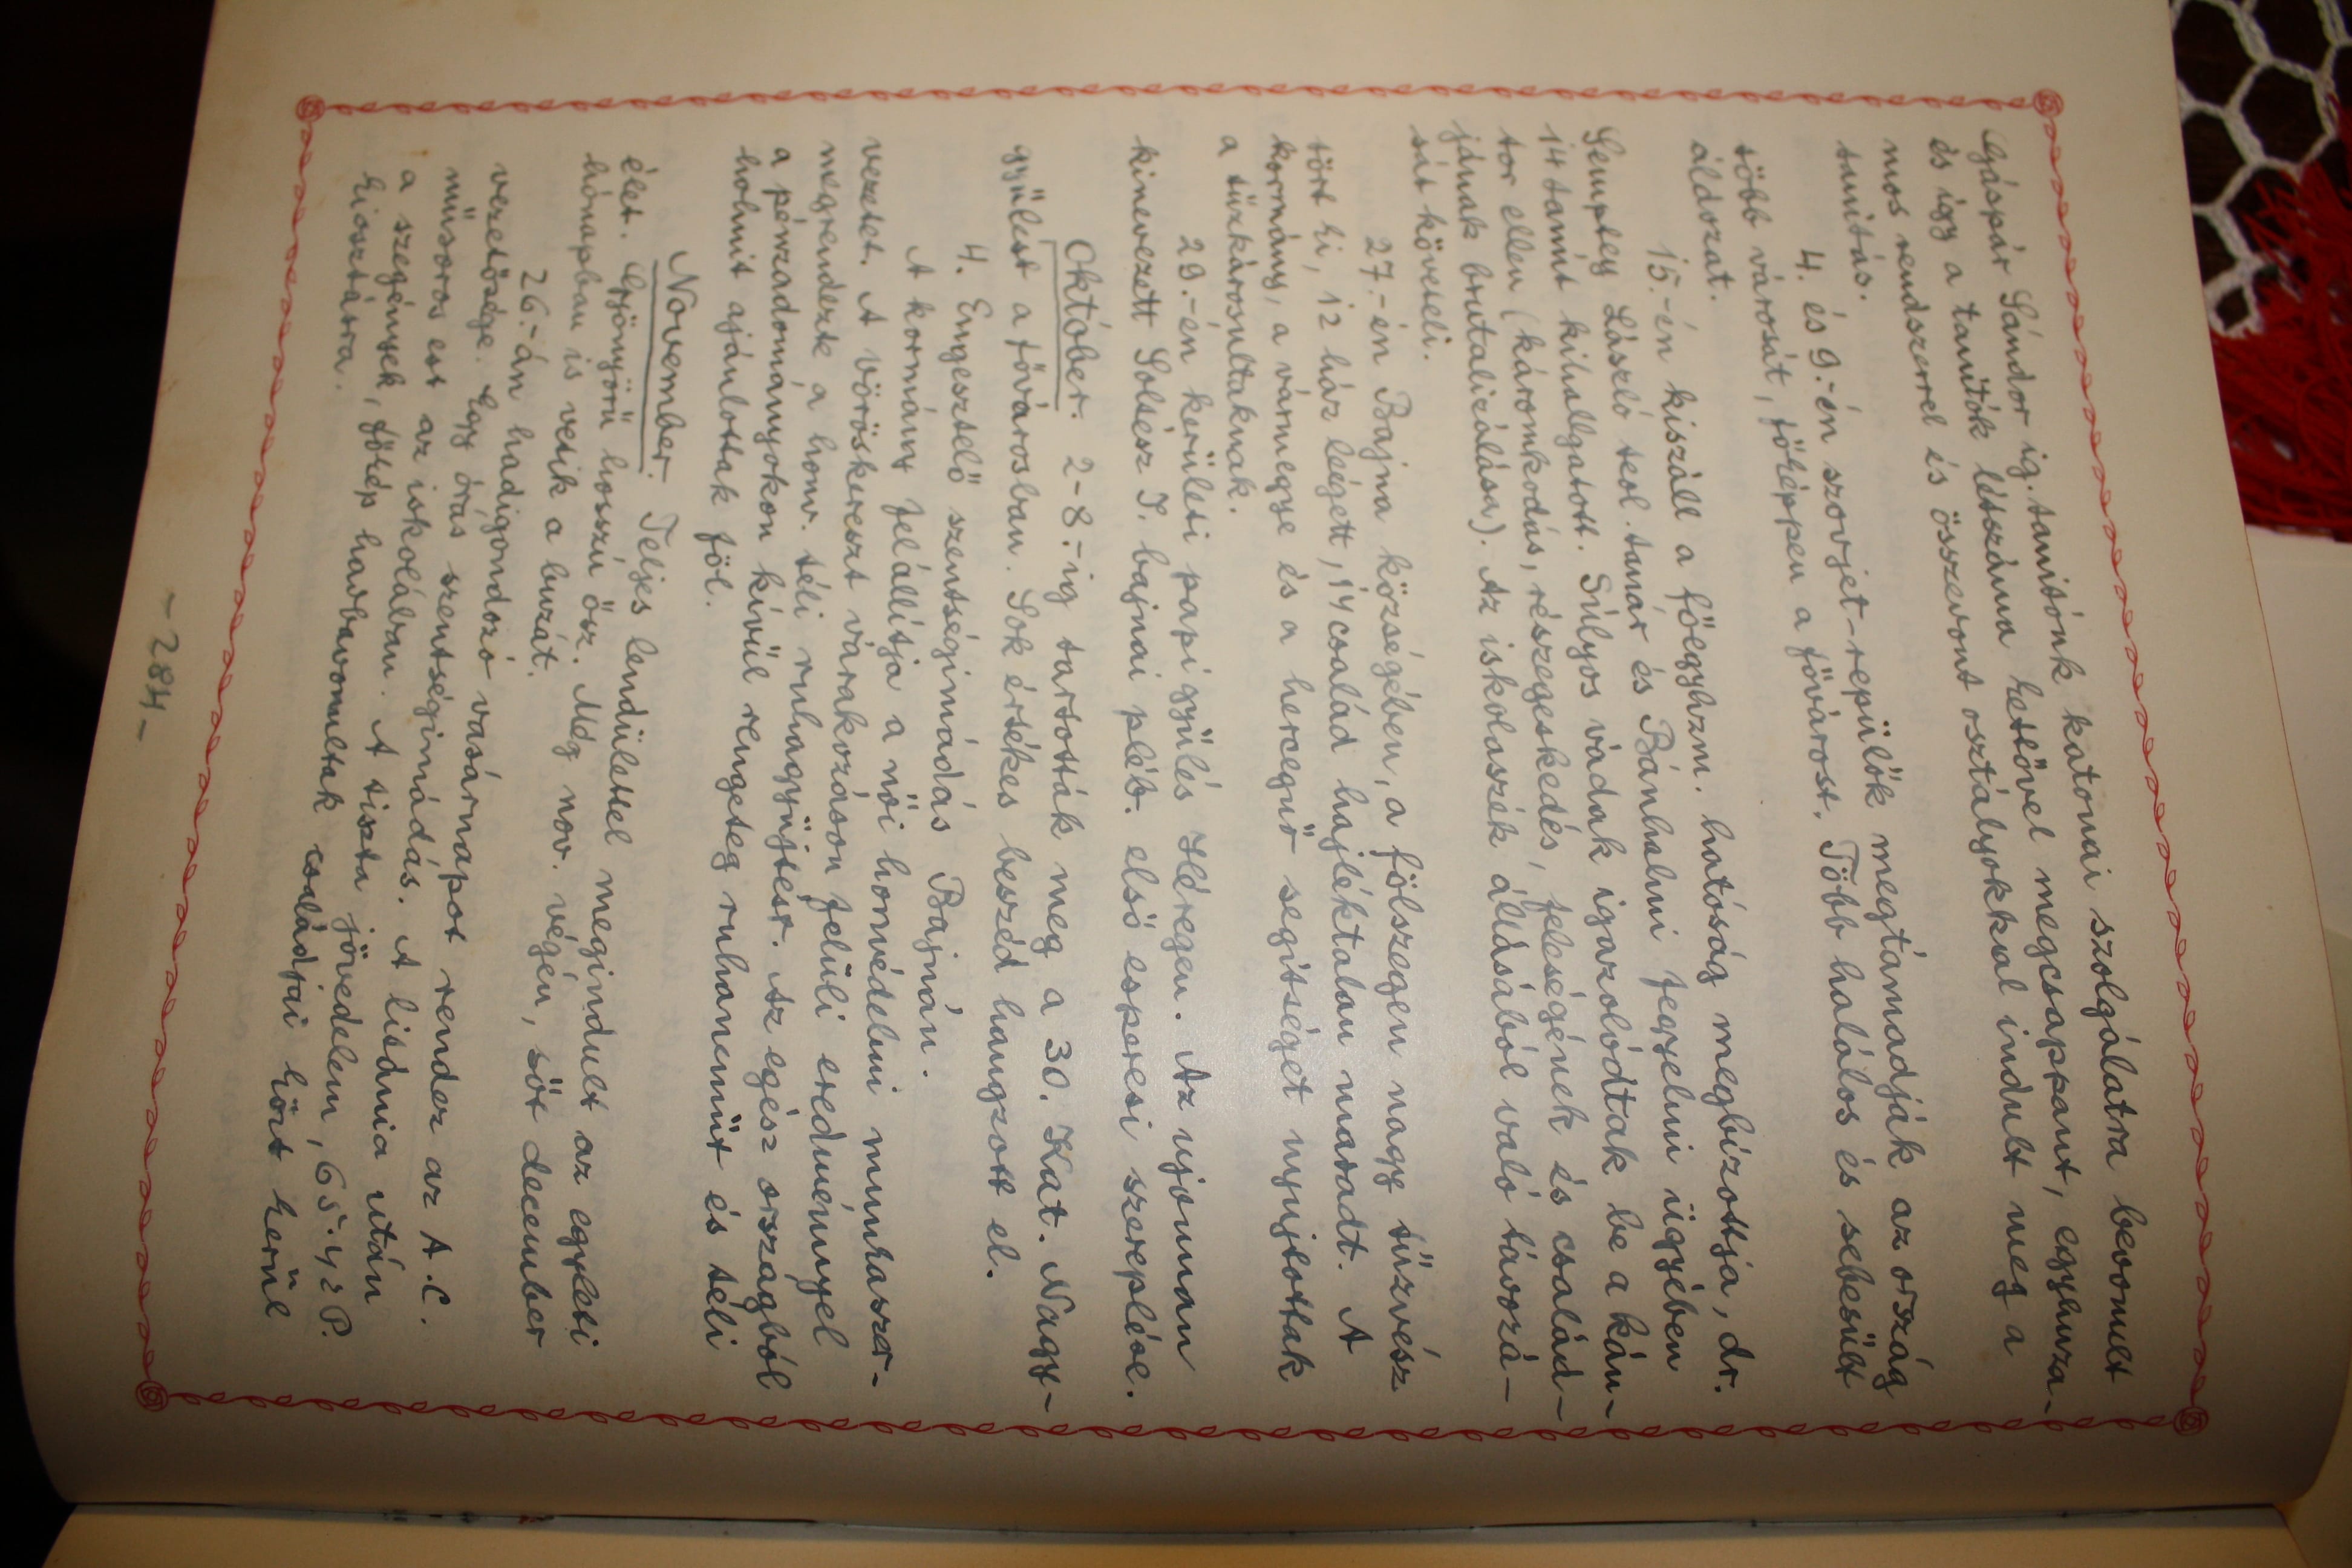 Gáspár Sándor ig. tanitónk katonai szolgálatra bevonult
és igy a tanitók létszáma kettővel megcsappant, egyhuza-
mos rendszerrel és összevont osztályokkal indult meg a
tanitás.
4. és 9.-én szovjet-repülők megtámadják az ország
több városát, főképpen a fővárost. Több halálos és sebesült
áldozat.
15.-én kiszáll a főegyhzm. hatóság megbizottja, dr.
Lászó teol. tanár és Bánhelmi fegyelmi ügyében
14 tanút kihallgatott. Súlyos vádak igazolódtak be a kán-
tor ellen (káromkodás, részegeskedés, feleségének és család-
jának brutalizálása). Az iskolaszék állásából való távozá-
sát követeli.
27.-én Bajna községében, a fölszegen nagy tűzvész
tört ki, 12 ház leégett, 14 család hajléktalan maradt. A
kormány, a vármegye és a hercegnő segitséget nyujtottak
a tűzkárosultaknak.
29.-én kerületi papi gyülés Héregen. Az ujonnan
kinevezett Soltész I. bajnai pléb. első esperesi szereplése.
Október. 2-8.-ig tartották meg a 30. Kat. Nagy-
gyűlést a fővárosban. Sok értékes beszéd hangzott el.
4. Engesztelő szentségimádás Bajnán.
A kormány felállitja a női honvédelmi munkaszer-
vezetet. A vöröskereszt várakozáson felüli eredménnyel
megrendezte a honv. téli ruhagyüjtést. Az egész országból
a pénzadományokon kívül rengeteg ruhanemüt és téli
holmit ajánlottak föl.
November. Teljes lendülettel megindult az egyleti
élet. Gyönyörű hosszú ősz. Még nov. végén, sőt december
hónapban is vetik a buzát.
26.-án hadigondozó vasárnapot rendez az A.C.
vezetősége. Egy órás szentségimádás. A litánia után
műsoros est az iskolában. A tiszta jövedelem, 65.42 P.
a szegények, főkép hadbavonultak családjai közt kerül
kiosztásra.
- 284 -